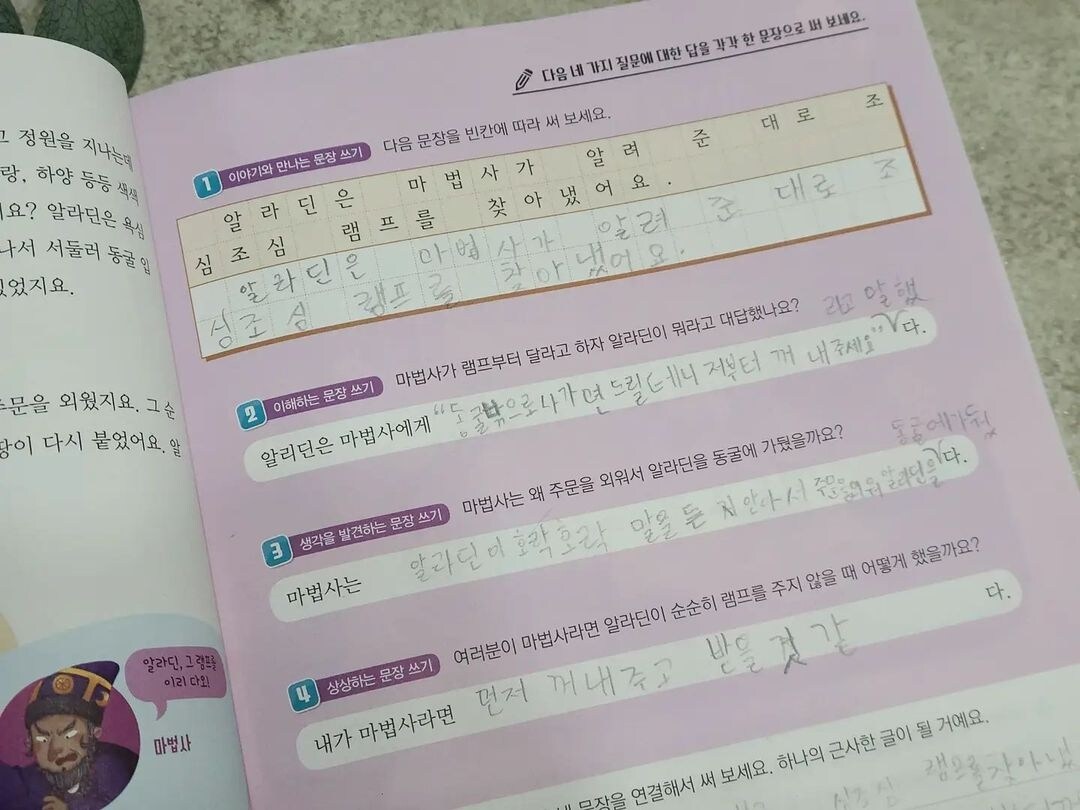 고 정원을 지나는데
랑, 하양 등등 색색
요? 알라딘은 욕심
나서 서둘러 동굴 입
있었지요.
주문을 외웠지요. 그 순
땅이 다시 붙었어요. 알
알라딘, 그 램프를
이리 다오!
마법사
다음 네 가지 질문에 대한 답을 각각 한 문장으로 써 보세요.
1 이야기와 만나는 문장 쓰기 다음 문장을 빈칸에 따라 써 보세요.
알라딘은 마법사가 알려 준 대로 조
심조심 램프를 찾아냈어요.
알라딘은 마법사가 알려 준 대로 조
심조심 램프를 찾아냈어요.
2 이해하는 문장 쓰기 마법사가 램프부터 달라고 하자 알라딘이 뭐라고 대답했나요?
라고 말했
알리딘은 마법사에게 "동굴밖으로 나가면 드릴 테니 저부터 꺼내주세요" 다.
3 생각을 발견하는 문장 쓰기 마법사는 왜 주문을 외워서 알라딘을 동굴에 가뒀을까요?
동굴에가뒀
마법사는 알라딘이 호락호락 말을 듣지 안아서 주문을외워 알라딘을 다.
4 상상하는 문장 쓰기 여러분이 마법사라면 알라딘이 순순히 램프를 주지 않을 때 어떻게 했을까요?
내가 마법사라면 먼저 꺼내주고 받을 것 같 다.
네 문장을 연결해서 써 보세요. 하나의 근사한 글이 될 거예요.
조심 램프를 찾아냈